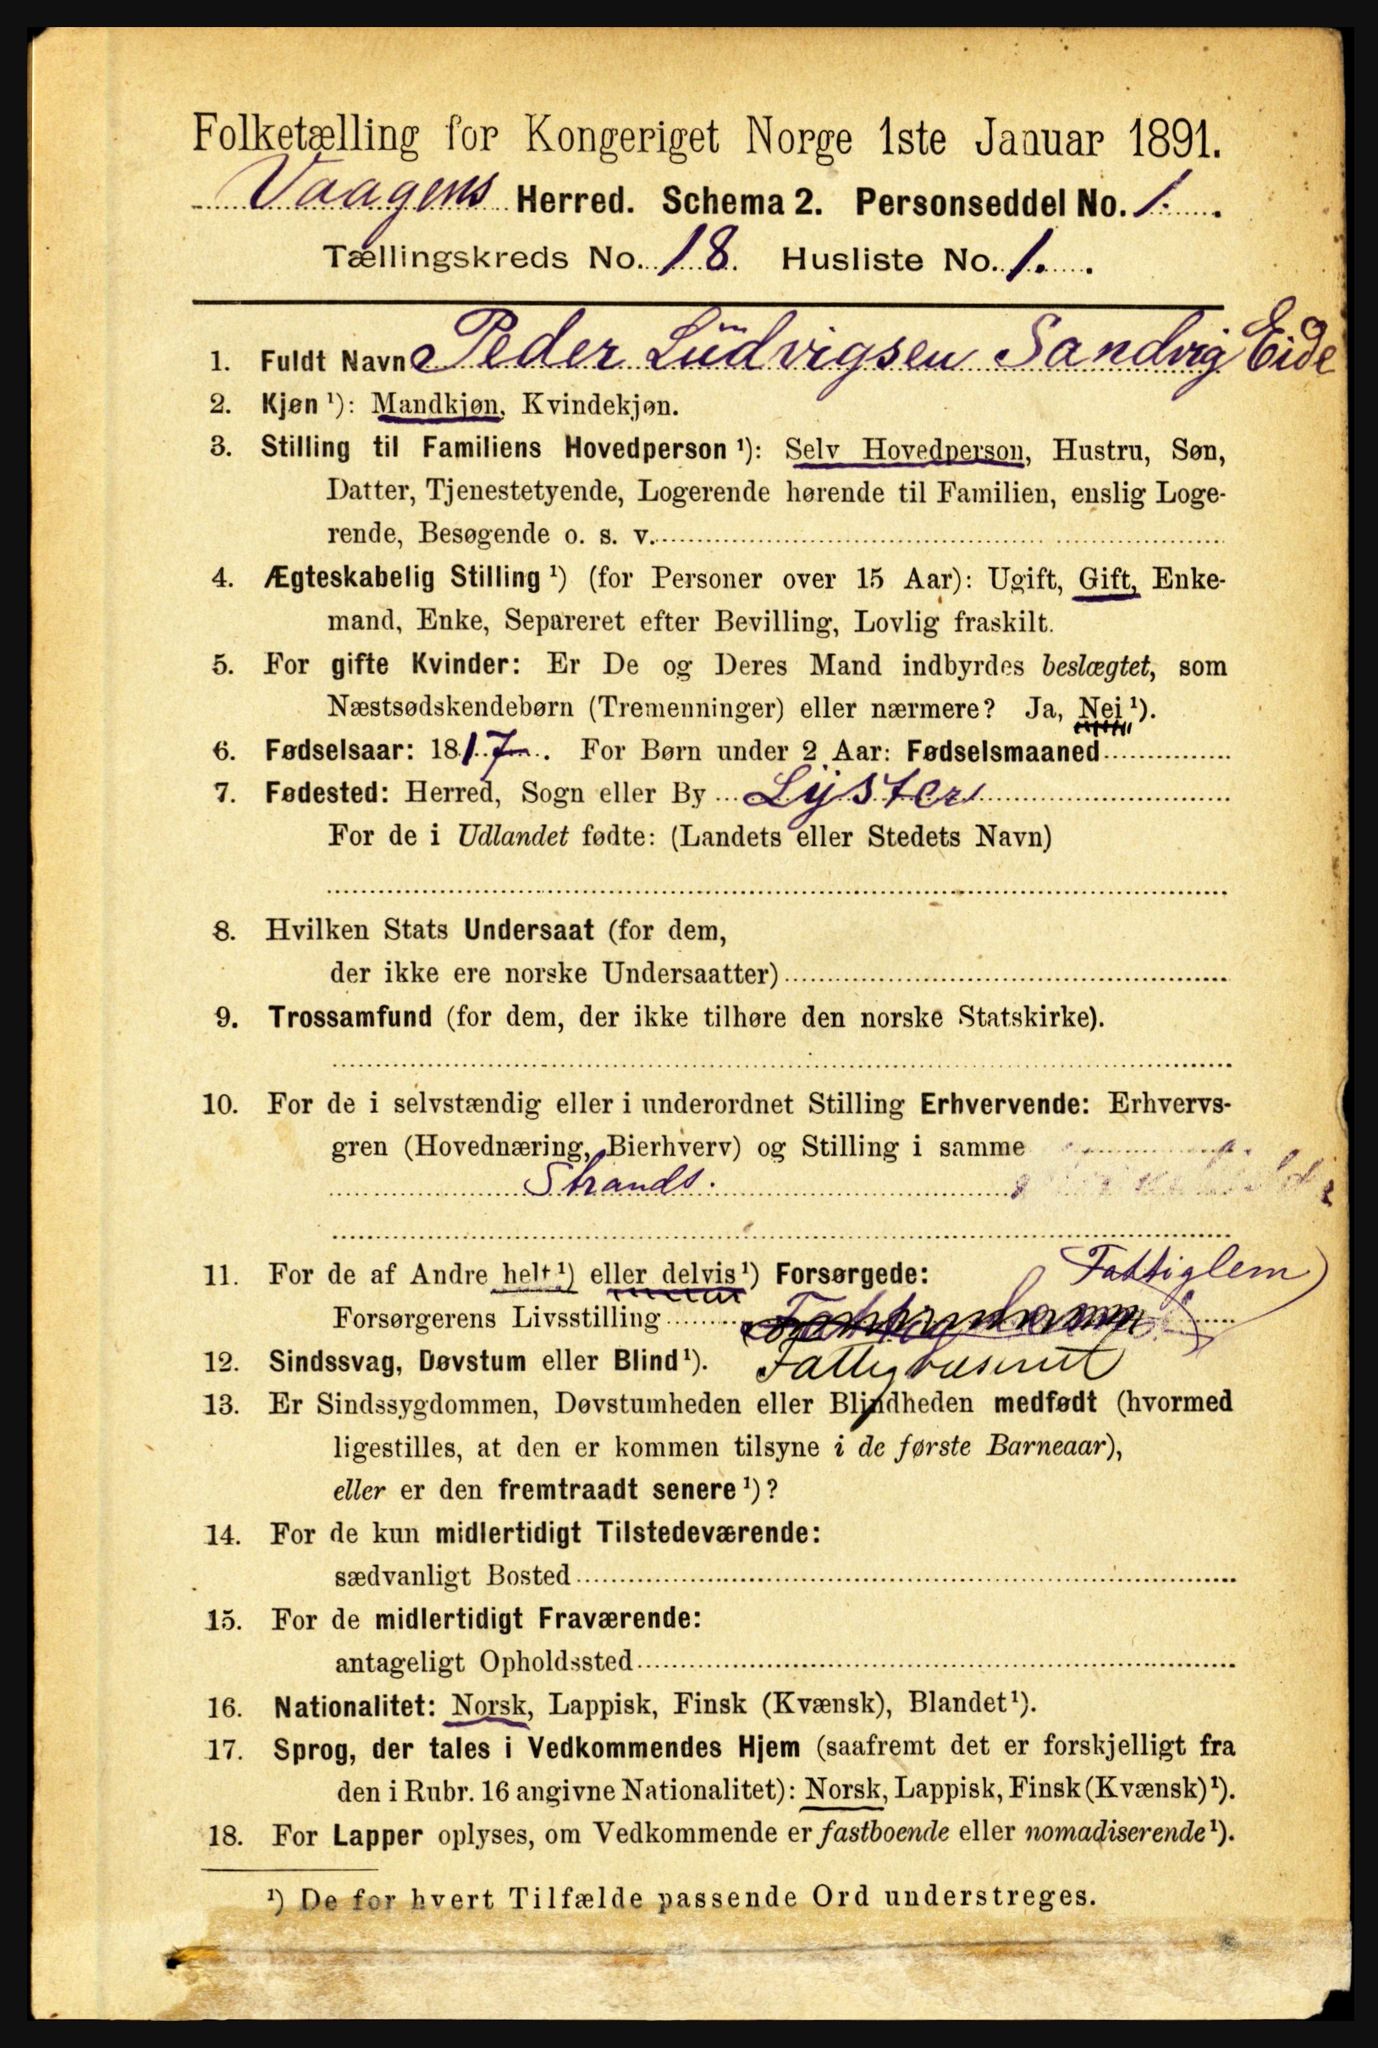 Folketælling for Kongeriget Norge 1ste Januar 1891.
Vaagens Herred. Schema 2. Personseddel No. 1.
Tællingskreds No. 18. Husliste No. 1.
1. Fuldt Navn Peder Ludvigsen Sandvig Eide
2. Kjøn ¹): Mandkjøn, Kvindekjøn.
3. Stilling til Familiens Hovedperson ¹): Selv Hovedperson, Hustru, Søn,
Datter, Tjenestetyende, Logerende hørende til Familien, enslig Loge-
rende, Besøgende o. s. v.
4. Ægteskabelig Stilling ¹) (for Personer over 15 Aar): Ugift, Gift, Enke-
mand, Enke, Separeret efter Bevilling, Lovlig fraskilt.
5. For gifte Kvinder: Er De og Deres Mand indbyrdes beslægtet, som
Næstsødskendebørn (Tremenninger) eller nærmere? Ja, Nei ¹).
6. Fødselsaar: 1817. For Børn under 2 Aar: Fødselsmaaned
7. Fødested: Herred, Sogn eller By Lyster
For de i Udlandet fødte: (Landets eller Stedets Navn)
8. Hvilken Stats Undersaat (for dem,
der ikke ere norske Undersaatter)
9. Trossamfund (for dem, der ikke tilhøre den norske Statskirke).
10. For de i selvstændig eller i underordnet Stilling Erhvervende: Erhvervs-
gren (Hovednæring, Bierhverv) og Stilling i samme
Strands.
11. For de af Andre helt ¹) eller delvis ¹) Forsørgede: Fattiglem
Forsørgerens Livsstilling
12. Sindssvag, Døvstum eller Blind ¹). Fattigvæsenet
13. Er Sindssygdommen, Døvstumheden eller Blindheden medfødt (hvormed
ligestilles, at den er kommen tilsyne i de første Barneaar),
eller er den fremtraadt senere ¹)?
14. For de kun midlertidigt Tilstedeværende:
sædvanligt Bosted
15. For de midlertidigt Fraværende:
antageligt Opholdssted
16. Nationalitet: Norsk, Lappisk, Finsk (Kvænsk), Blandet ¹).
17. Sprog, der tales i Vedkommendes Hjem (saafremt det er forskjelligt fra
den i Rubr. 16 angivne Nationalitet): Norsk, Lappisk, Finsk (Kvænsk) ¹).
18. For Lapper oplyses, om Vedkommende er fastboende eller nomadiserende ¹).
¹) De for hvert Tilfælde passende Ord understreges.